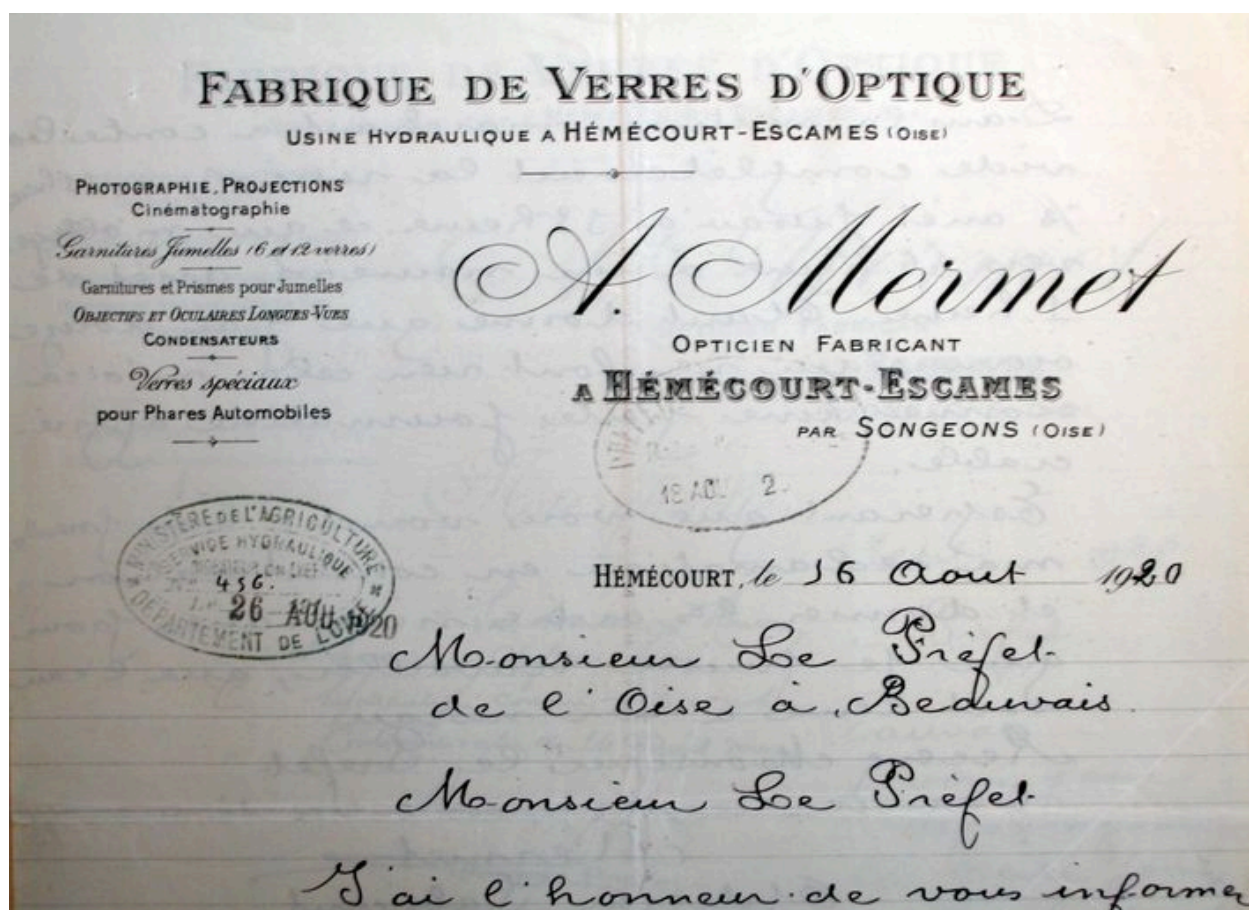 FABRIQUE DE VERRES D'OPTIQUE
USINE HYDRAULIQUE A HÉMÉCOURT-ESCAMES (OISE)
PHOTOGRAPHIE, PROJECTIONS
Cinématographie
Garnitures Jumelles (6 et 12 verres)
Garnitures et Prismes pour Jumelles
OBJECTIFS ET OCULAIRES LONGUES-VUES
CONDENSATEURS
Verres spéciaux
pour Phares Automobiles
A. Mermet
OPTICIEN FABRICANT
A HÉMÉCOURT-ESCAMES
PAR SONGEONS (OISE)
18 AOU 2
MINISTÈRE DE L'AGRICULTURE
SERVICE HYDRAULIQUE
456.
26 AOU 1920
DÉPARTEMENT DE L'OISE
HÉMÉCOURT, le 16 Aout 1920
Monsieur Le Préfet
de l'Oise à Beauvais
Monsieur Le Préfet
J'ai l'honneur de vous informer